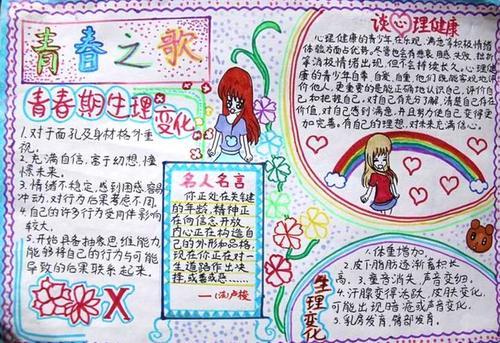 青春之歌
青春期生理
变化
1.对于面乳及身材格外重
视。
2.充满自信,富于幻想,憧
憬未来。
3.情绪不稳定,感到困惑,容易
冲动,对行为后果考虑不周,
4.自己的许多行为受同伴影响
较大。
5.开始具备抽象思维能力
能够将自己的行为与可能
导致的后果联系起来。
名人名言
你正处在关键
的年龄,精神正
在向信念开放
内心正在构造自
己的外形和品格,
现在你正在对一
生道路作出决
择,或善或恶……
——(法)卢梭
谈心理健康
心理健康的青少年在乐观、满意等积极情绪
体验方面占优势。尽管也会有悲哀、困惑、失败、挫折
等消极情绪出现,但不会持续长久,心理健
康的青少年自尊、自爱、自重,他们既能客观地评
价他人,更重要的是能正确地认识自己,评价自
己和把握自己,对自己有充分了解,清楚自己存在
价值,对自己感到满意,并且努力使自己变得更
加完善,有自己的理想,对未来充满信心。
生理变化
1.体重增加
2.皮下脂肪逐渐累积长
高、3.童音消失,声音变细。
4.汗腺变得活跃,皮肤变化,
可能出现暗疮或声音变化
5.乳房发育,臀部发育。